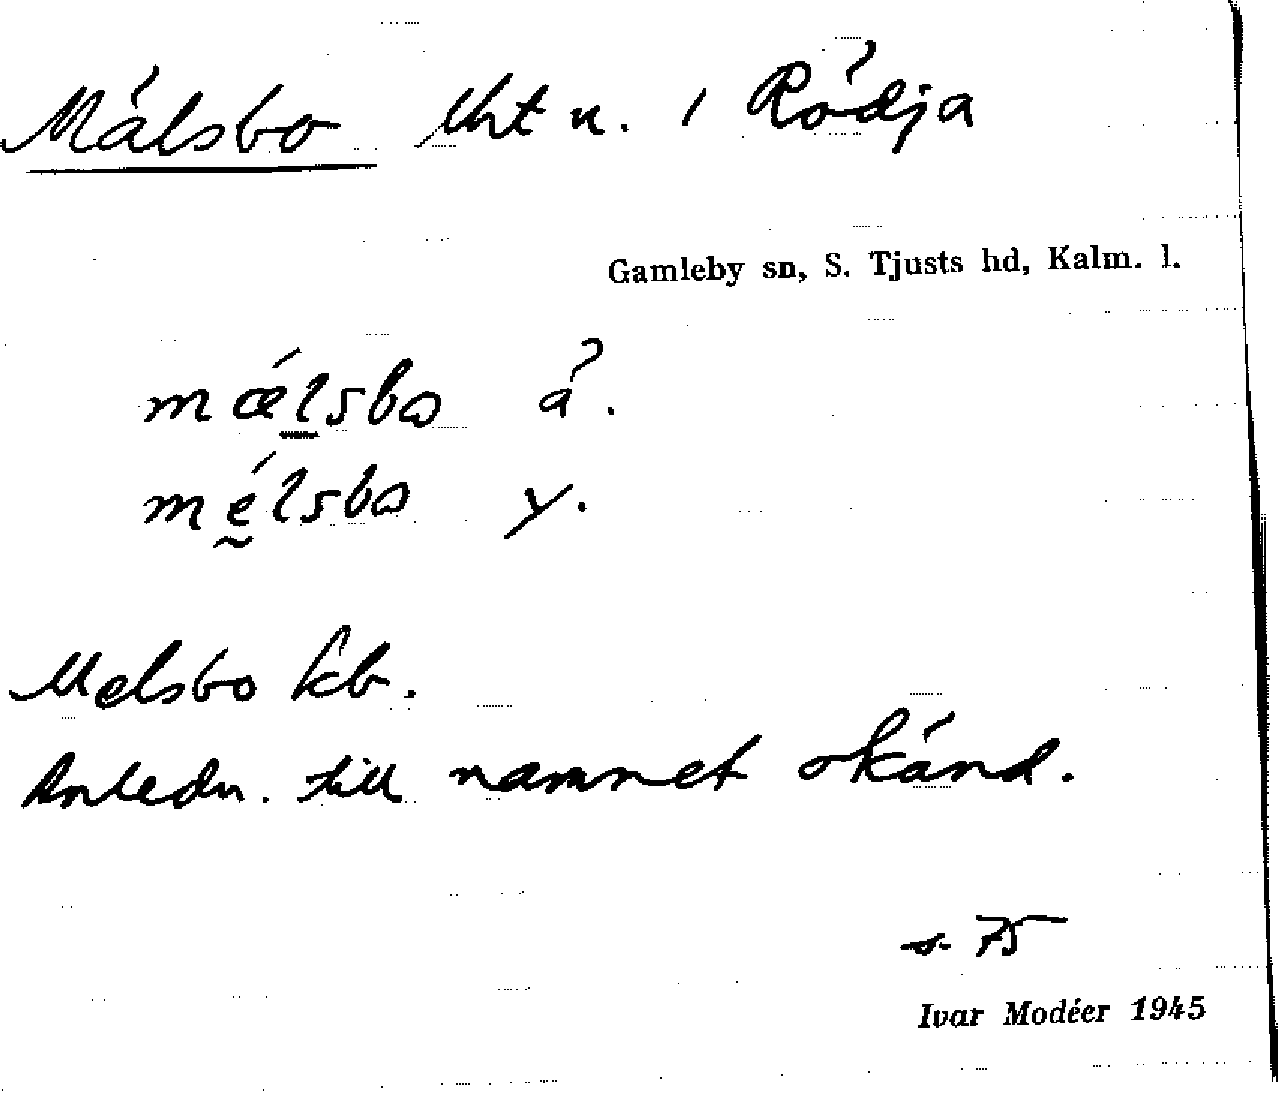 Målsbo lht u. i Rödja
Gamleby sn, S. Tjusts hd, Kalm. l.
mǽlsbo ä.
mélsbo y.
Melsbo kb.
Anledn. till namnet okänd.
s. 75
Ivar Modéer 1945